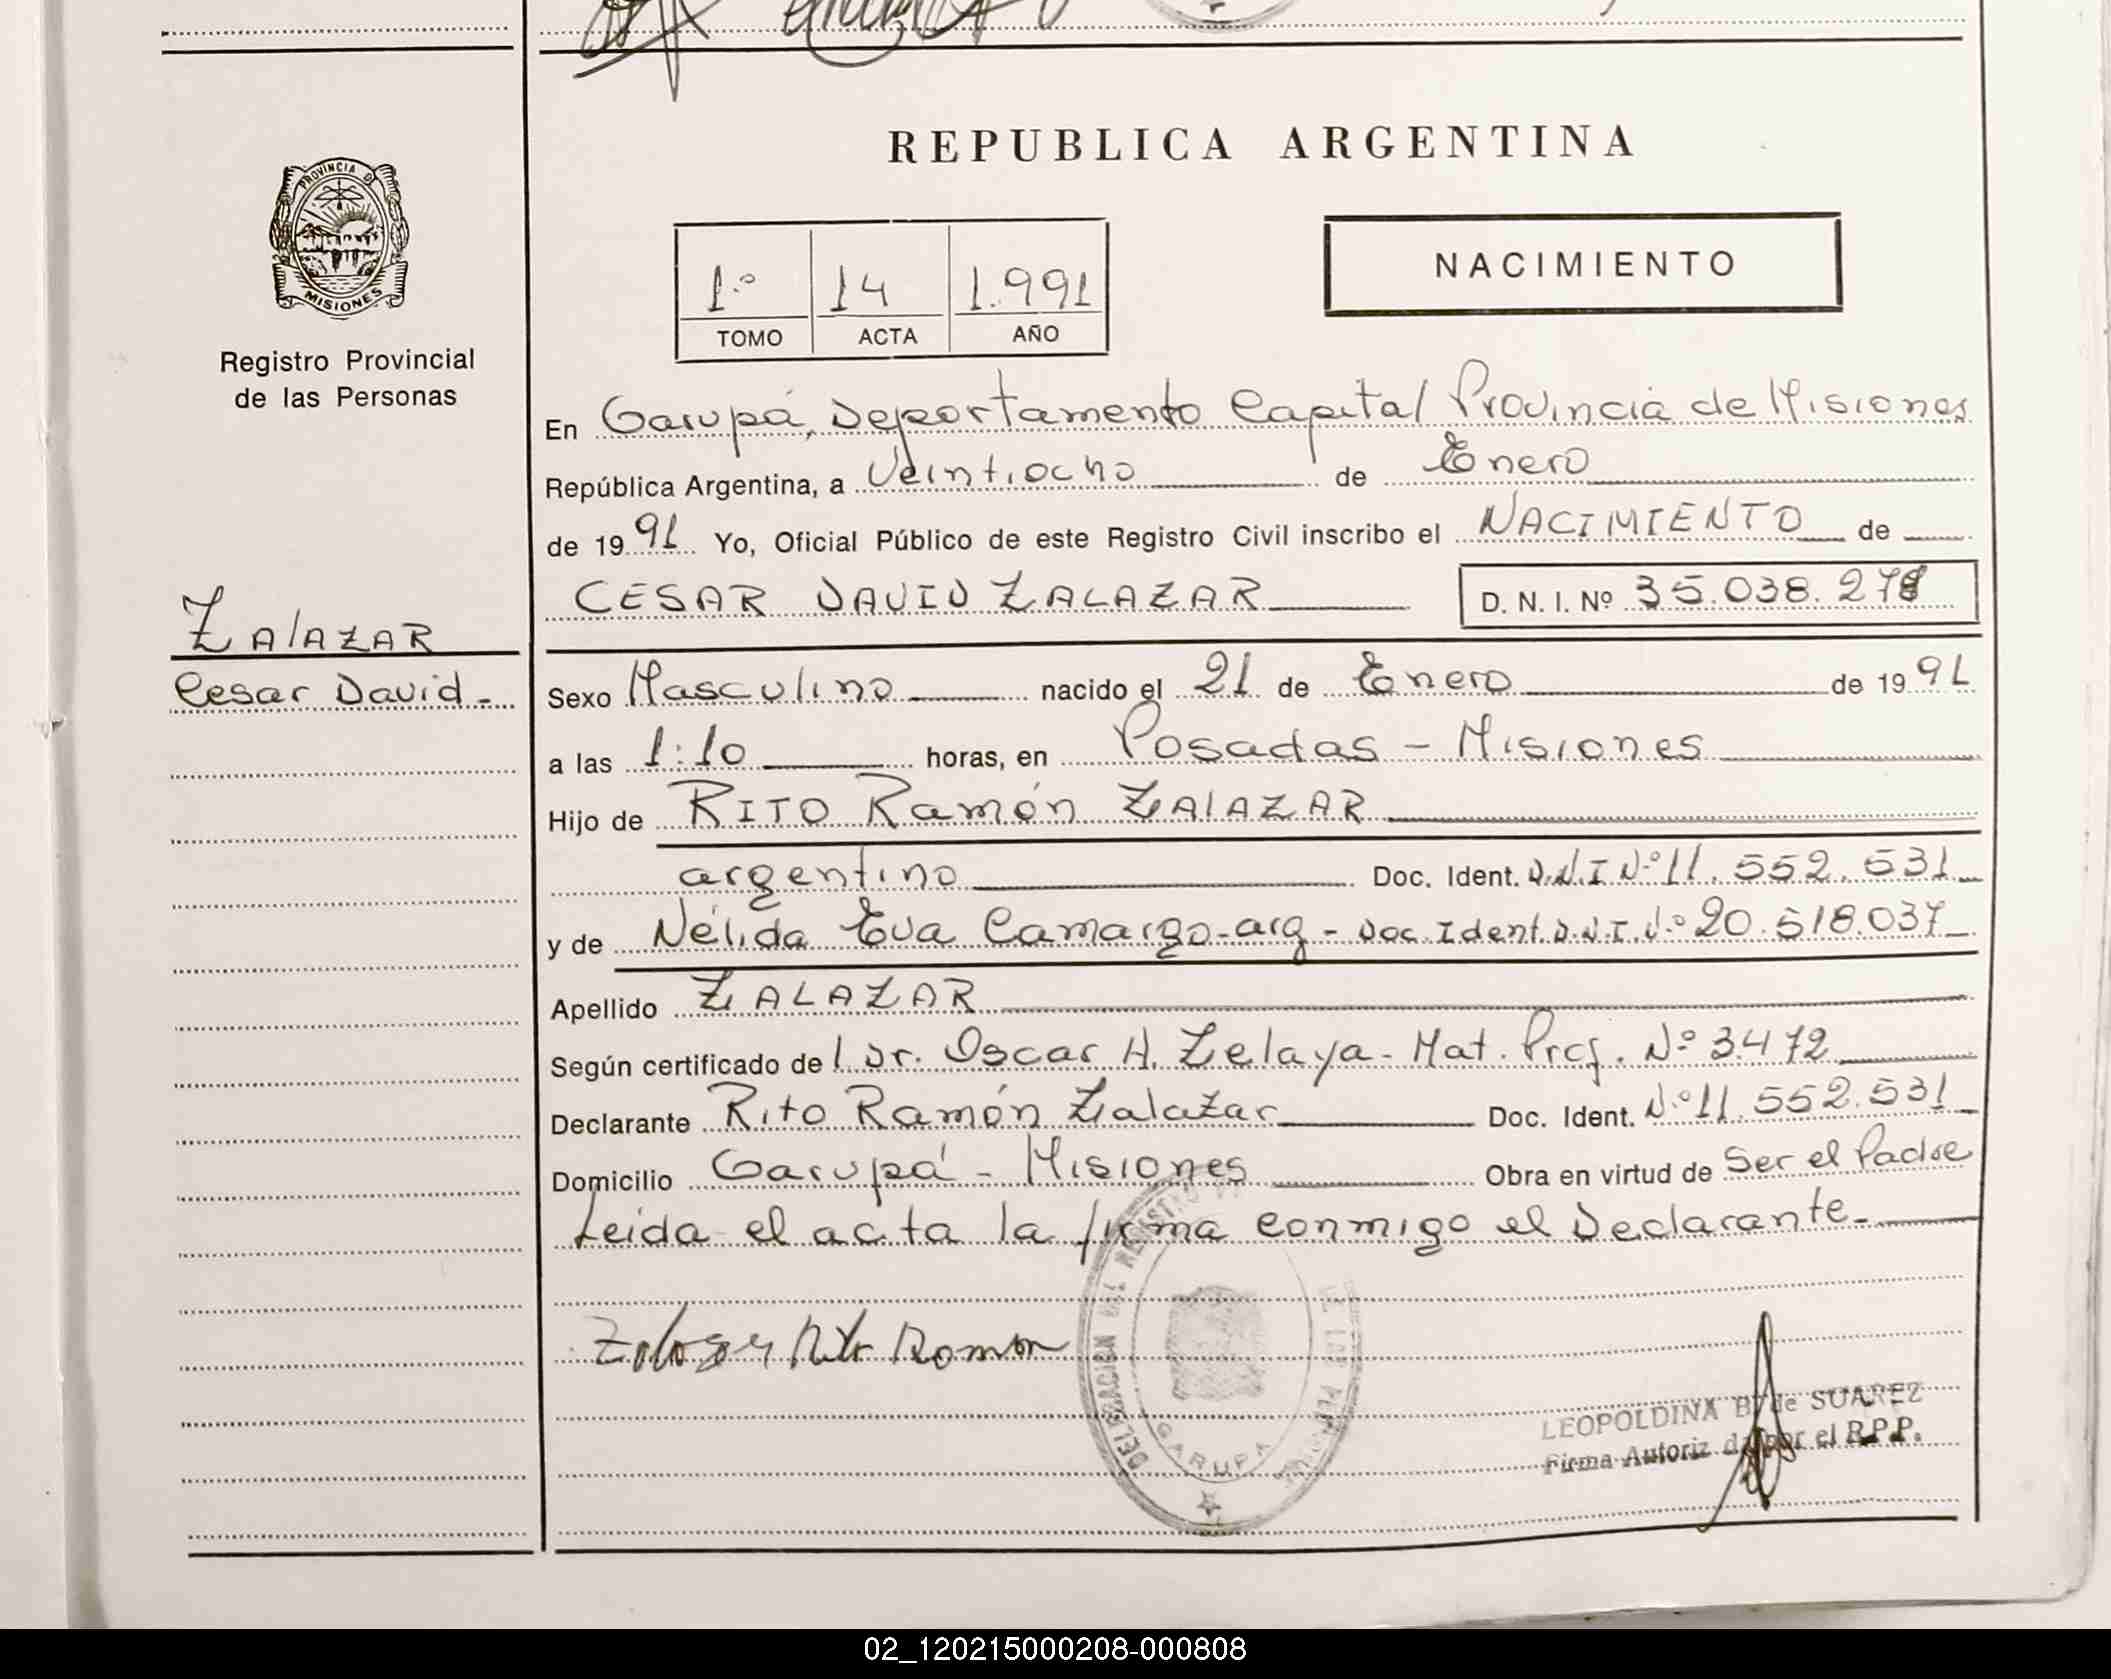 REPUBLICA ARGENTINA
PROVINCIA D
MISIONES
Registro Provincial
de las Personas
1º 14 1.991
TOMO ACTA AÑO
NACIMIENTO
En Garupá, Departamento Capital Provincia de Misiones
República Argentina, a Veintiocho de Enero
de 1991 Yo, Oficial Público de este Registro Civil inscribo el NACIMIENTO de
CESAR DAVID ZALAZAR D. N. I. Nº 35.038.278
ZALAZAR
Cesar David-
Sexo Masculino nacido el 21 de Enero de 1991
a las 1:10 horas, en Posadas - Misiones
Hijo de RITO Ramón ZALAZAR
argentino Doc. Ident. D.N.I Nº 11.552.531
y de Nélida Eva Camargo-arg- Doc. Ident. D.N.I. Nº 20.518.037
Apellido ZALAZAR
Según certificado del Dr. Oscar H. Zelaya- Mat. Prof. Nº 3.472
Declarante Rito Ramón Zalazar Doc. Ident. Nº 11.552.531
Domicilio Garupá - Misiones Obra en virtud de Ser el Padre
Leida el acta la firma conmigo el Declarante-
Zalazar Rito Ramon
DELEGACION DEL REGISTRO DE LAS PERSONAS
GARUPA
LEOPOLDINA B. de SUAREZ
Firma Autorizada por el R.P.P.
02_120215000208-000808